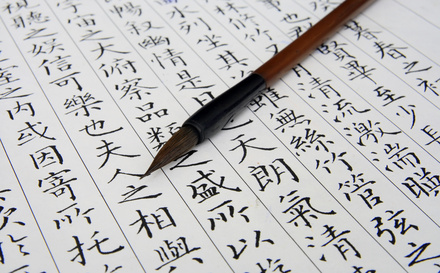 春
賢畢至少長
清流激湍暎
水列坐其雖無絲竹管弦之
暢敘幽情是天朗氣清
之大府察品類之盛所以
視聽之娛信可樂也夫人之相與
之內或因寄所托